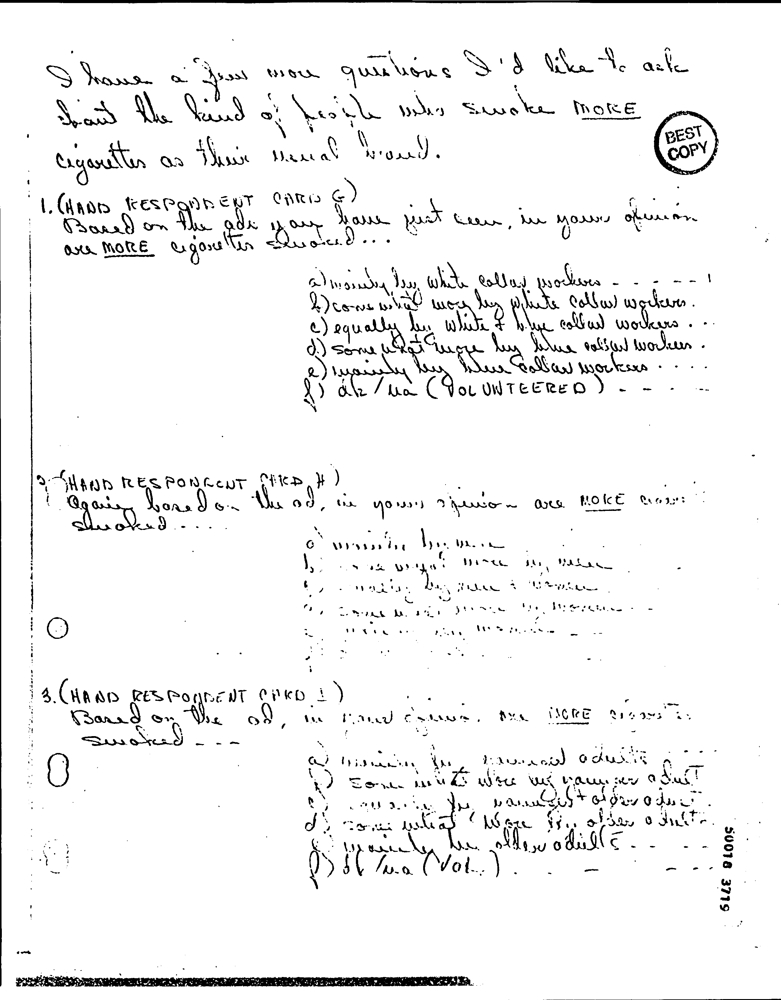 I have a few more questions I'd like to ask
about the kind of people who smoke MORE
cigarettes as their usual brand.
BEST
COPY
1. (HAND RESPONDENT CARD G)
Based on the ads you have just seen, in your opinion
are MORE cigarettes smoked...
a) mainly by white collar workers - - - - - 1
b) somewhat more by white collar workers.
c) equally by white & blue collar workers...
d) somewhat more by blue collar workers.
e) mainly by blue collar workers....
f) dk/na (VOLUNTEERED) - - - -
2. (HAND RESPONDENT CARD H)
Again, based on the ad, in your opinion are MORE
smoked....
a) mainly by men
more by men
by men & women
somewhat more by women
3. (HAND RESPONDENT CARD I)
Based on the ad, in your are MORE
smoked - - -
a) mainly by adults
b) somewhat more by younger adult
c) by younger + older adult.
d) somewhat more by older adult
e) mainly by older adults - - -
f) dk/na (Vol.) - -
50018 3719